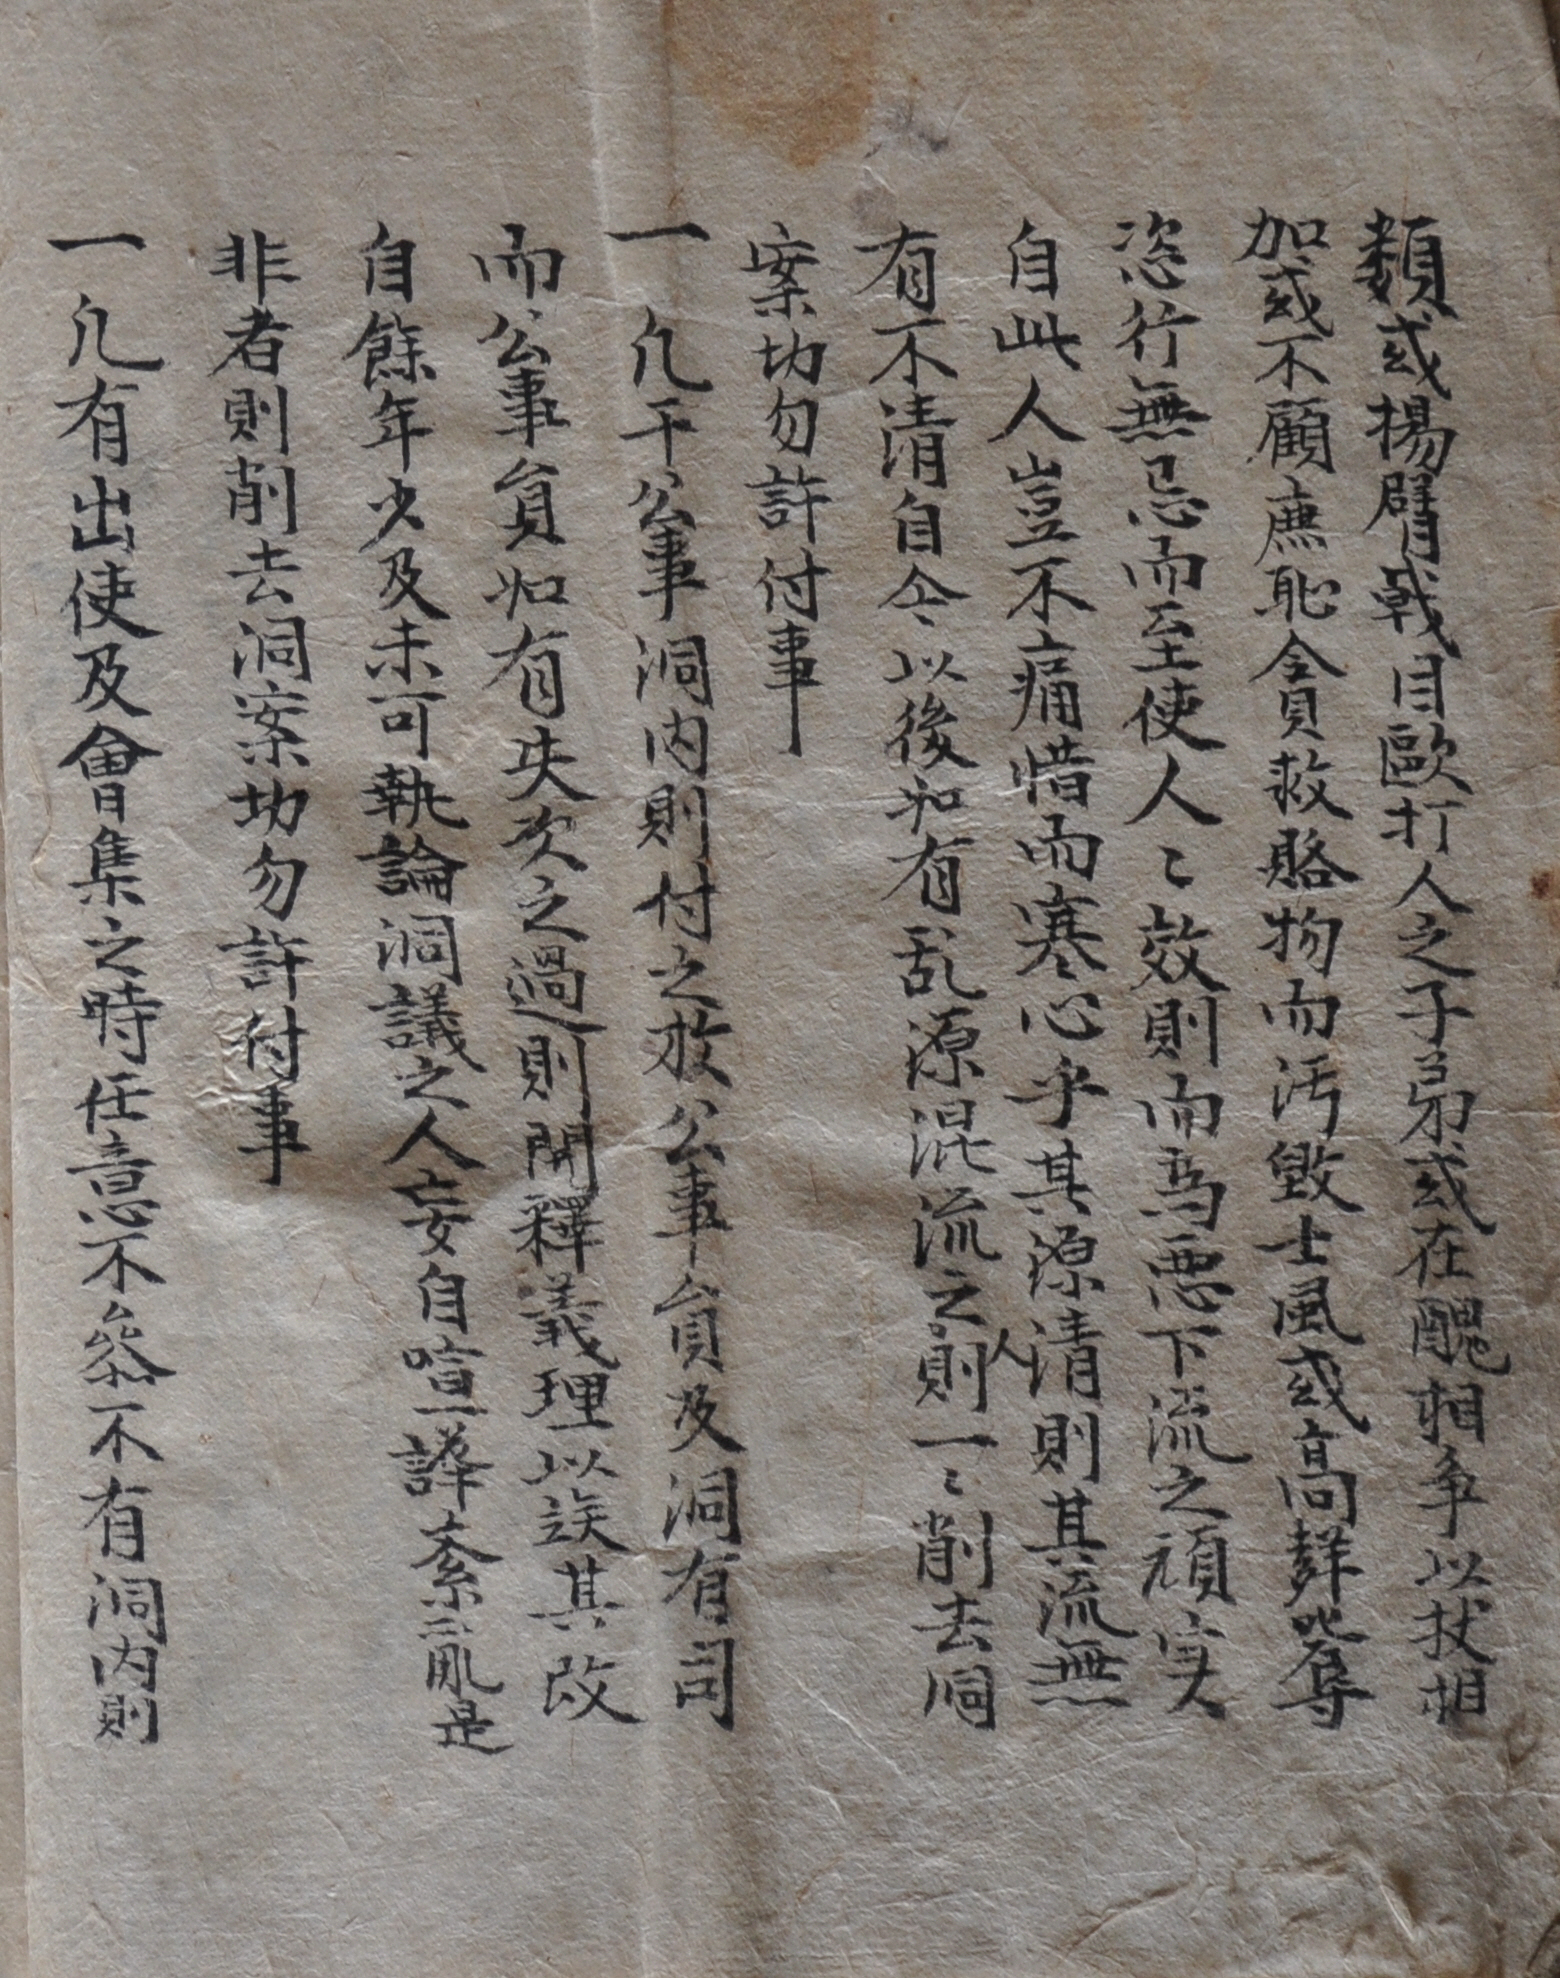 類或揚臂戟目歐打人之子弟或在醜相爭以杖相
加或不顧庶恥貪賂物而汚毀士風或高聲詈辱
恣行無忌而至使人〻效則而爲惡下流之頑
自此人豈不痛惜而寒心乎其源清則其流無
有不清自今以後如有乱源混流之人則一〻削去洞
案切勿許付事
一凡干公事洞內則付之於公事員及洞有司
而公事員如有失次之過則開釋義理以俟其改
自餘年少及未可執論洞議之人妄自喧譁紊亂是
非者則削去洞案切勿許付事
一凡有出使及會集之時任意不叅不有洞內則